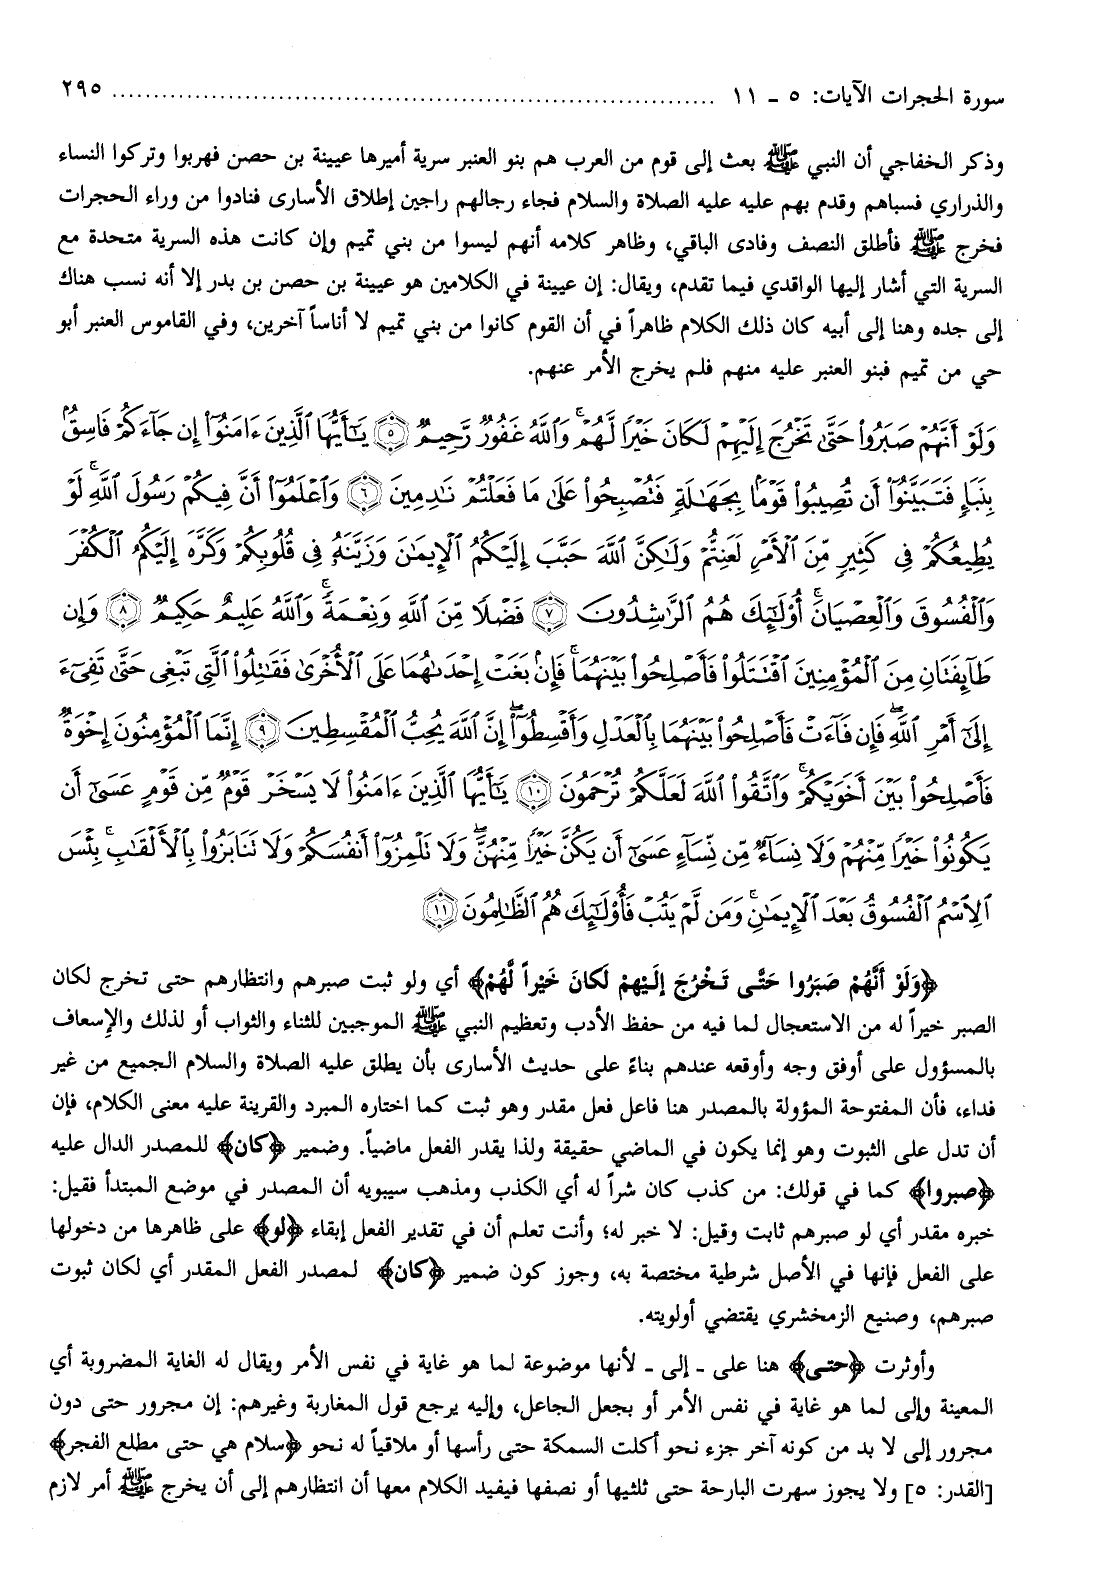 سورة الحجرات الآيات: ٥ ـ ١١ ........................................................................ ٢٩٥
وذكر الخفاجي أن النبي ﷺ بعث إلى قوم من العرب هم بنو العنبر سرية أميرها عيينة بن حصن فهربوا وتركوا النساء
والذراري فسباهم وقدم بهم عليه عليه الصلاة والسلام فجاء رجالهم راجين إطلاق الأسارى فنادوا من وراء الحجرات
فخرج ﷺ فأطلق النصف وفادى الباقي، وظاهر كلامه أنهم ليسوا من بني تميم وإن كانت هذه السرية متحدة مع
السرية التي أشار إليها الواقدي فيما تقدم، ويقال: إن عيينة في الكلامين هو عيينة بن حصن بن بدر إلا أنه نسب هناك
إلى جده وهنا إلى أبيه كان ذلك الكلام ظاهراً في أن القوم كانوا من بني تميم لا أناساً آخرين، وفي القاموس العنبر أبو
حي من تميم فبنو العنبر عليه منهم فلم يخرج الأمر عنهم.
وَلَوْ أَنَّهُمْ صَبَرُوا۟ حَتَّىٰ تَخْرُجَ إِلَيْهِمْ لَكَانَ خَيْرًا لَّهُمْ ۚ وَٱللَّهُ غَفُورٌ رَّحِيمٌ ﴿٥﴾ يَـٰٓأَيُّهَا ٱلَّذِينَ ءَامَنُوٓا۟ إِن جَآءَكُمْ فَاسِقٌۢ
بِنَبَإٍ فَتَبَيَّنُوٓا۟ أَن تُصِيبُوا۟ قَوْمًۢا بِجَهَـٰلَةٍ فَتُصْبِحُوا۟ عَلَىٰ مَا فَعَلْتُمْ نَـٰدِمِينَ ﴿٦﴾ وَٱعْلَمُوٓا۟ أَنَّ فِيكُمْ رَسُولَ ٱللَّهِ ۚ لَوْ
يُطِيعُكُمْ فِى كَثِيرٍ مِّنَ ٱلْأَمْرِ لَعَنِتُّمْ وَلَـٰكِنَّ ٱللَّهَ حَبَّبَ إِلَيْكُمُ ٱلْإِيمَـٰنَ وَزَيَّنَهُۥ فِى قُلُوبِكُمْ وَكَرَّهَ إِلَيْكُمُ ٱلْكُفْرَ
وَٱلْفُسُوقَ وَٱلْعِصْيَانَ ۚ أُو۟لَـٰٓئِكَ هُمُ ٱلرَّٰشِدُونَ ﴿٧﴾ فَضْلًا مِّنَ ٱللَّهِ وَنِعْمَةً ۚ وَٱللَّهُ عَلِيمٌ حَكِيمٌ ﴿٨﴾ وَإِن
طَآئِفَتَانِ مِنَ ٱلْمُؤْمِنِينَ ٱقْتَتَلُوا۟ فَأَصْلِحُوا۟ بَيْنَهُمَا ۖ فَإِنۢ بَغَتْ إِحْدَىٰهُمَا عَلَى ٱلْأُخْرَىٰ فَقَـٰتِلُوا۟ ٱلَّتِى تَبْغِى حَتَّىٰ تَفِىٓءَ
إِلَىٰٓ أَمْرِ ٱللَّهِ ۚ فَإِن فَآءَتْ فَأَصْلِحُوا۟ بَيْنَهُمَا بِٱلْعَدْلِ وَأَقْسِطُوٓا۟ ۖ إِنَّ ٱللَّهَ يُحِبُّ ٱلْمُقْسِطِينَ ﴿٩﴾ إِنَّمَا ٱلْمُؤْمِنُونَ إِخْوَةٌ
فَأَصْلِحُوا۟ بَيْنَ أَخَوَيْكُمْ ۚ وَٱتَّقُوا۟ ٱللَّهَ لَعَلَّكُمْ تُرْحَمُونَ ﴿١٠﴾ يَـٰٓأَيُّهَا ٱلَّذِينَ ءَامَنُوا۟ لَا يَسْخَرْ قَوْمٌ مِّن قَوْمٍ عَسَىٰٓ أَن
يَكُونُوا۟ خَيْرًا مِّنْهُمْ وَلَا نِسَآءٌ مِّن نِّسَآءٍ عَسَىٰٓ أَن يَكُنَّ خَيْرًا مِّنْهُنَّ ۖ وَلَا تَلْمِزُوٓا۟ أَنفُسَكُمْ وَلَا تَنَابَزُوا۟ بِٱلْأَلْقَـٰبِ ۖ بِئْسَ
ٱلِٱسْمُ ٱلْفُسُوقُ بَعْدَ ٱلْإِيمَـٰنِ ۚ وَمَن لَّمْ يَتُبْ فَأُو۟لَـٰٓئِكَ هُمُ ٱلظَّـٰلِمُونَ ﴿١١﴾
﴿وَلَوْ أَنَّهُمْ صَبَرُوا حَتَّى تَخْرُجَ إِلَيْهِمْ لَكَانَ خَيْراً لَّهُمْ﴾ أي ولو ثبت صبرهم وانتظارهم حتى تخرج لكان
الصبر خيراً له من الاستعجال لما فيه من حفظ الأدب وتعظيم النبي ﷺ الموجبين للثناء والثواب أو لذلك والإسعاف
بالمسؤول على أوفق وجه وأوقعه عندهم بناءً على حديث الأسارى بأن يطلق عليه الصلاة والسلام الجميع من غير
فداء، فأن المفتوحة المؤولة بالمصدر هنا فاعل فعل مقدر وهو ثبت كما اختاره المبرد والقرينة عليه معنى الكلام، فإن
أن تدل على الثبوت وهو إنما يكون في الماضي حقيقة ولذا يقدر الفعل ماضياً. وضمير ﴿كان﴾ للمصدر الدال عليه
﴿صبروا﴾ كما في قولك: من كذب كان شراً له أي الكذب ومذهب سيبويه أن المصدر في موضع المبتدأ فقيل:
خبره مقدر أي لو صبرهم ثابت وقيل: لا خبر له؛ وأنت تعلم أن في تقدير الفعل إبقاء ﴿لو﴾ على ظاهرها من دخولها
على الفعل فإنها في الأصل شرطية مختصة به، وجوز كون ضمير ﴿كان﴾ لمصدر الفعل المقدر أي لكان ثبوت
صبرهم، وصنيع الزمخشري يقتضي أولويته.
وأوثرت ﴿حتى﴾ هنا على ـ إلى ـ لأنها موضوعة لما هو غاية في نفس الأمر ويقال له الغاية المضروبة أي
المعينة وإلى لما هو غاية في نفس الأمر أو بجعل الجاعل، وإليه يرجع قول المغاربة وغيرهم: إن مجرور حتى دون
مجرور إلى لا بد من كونه آخر جزء نحو أكلت السمكة حتى رأسها أو ملاقياً له نحو ﴿سلام هي حتى مطلع الفجر﴾
[القدر: ٥] ولا يجوز سهرت البارحة حتى ثلثيها أو نصفها فيفيد الكلام معها أن انتظارهم إلى أن يخرج ﷺ أمر لازم